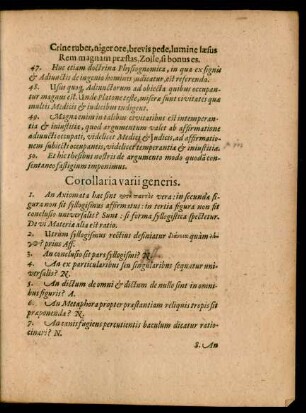 Crine ruber, niger ore, brevis pede, lumine læsus
Rem magnam præstas, Zoile, si bonus es.
47. Huc etiam doctrina Physiognomica, in qua ex signis
& Adiunctis de ingenio hominis judicatur, est referenda.
48. Usus quoq, Adiunctorum ad objecta quibus occupan-
tur magnus est. Unde Platone teste, misera sunt civitatis qua
multis Medicis & iudicibus indigent.
49. Magna enim in talibus civitatibus est intemperan-
tia & iniustitia, quod argumentum valet ab affirmatione
adiuncti occupati, videlicet Mediciq & Iudicis, ad affirmatio-
nem subiecti occupantis, videlicet intemperantia & iniustitia.
50. Et hic thesibus nostris de argumento modo quodā con-
sentaneo fastigium imponimus.
Corollaria varii generis.
1. An Axiomata hac sint vera: in secunda fi-
gura non sit syllogismus affirmatus: in tertia figura non sit
conclusio universalis? Sunt: si forma syllogistica spectetur.
De vi Materia alia est ratio.
2. Utrùm syllogismus rectius definiatur quàm
? prius Aff.
3. An conclusio sit pars syllogismi? N.
4. An ex particularibus seu singularibus sequatur uni-
versalis? N.
5. An dictum de omni & dictum de nullo sint in omni-
bus figuris? A.
6. An Metaphora propter præstantiam reliquis tropis sit
præponenda? N.
7. An canis fugiens percutientis baculum dicatur ratio-
cinari? N.
8. An